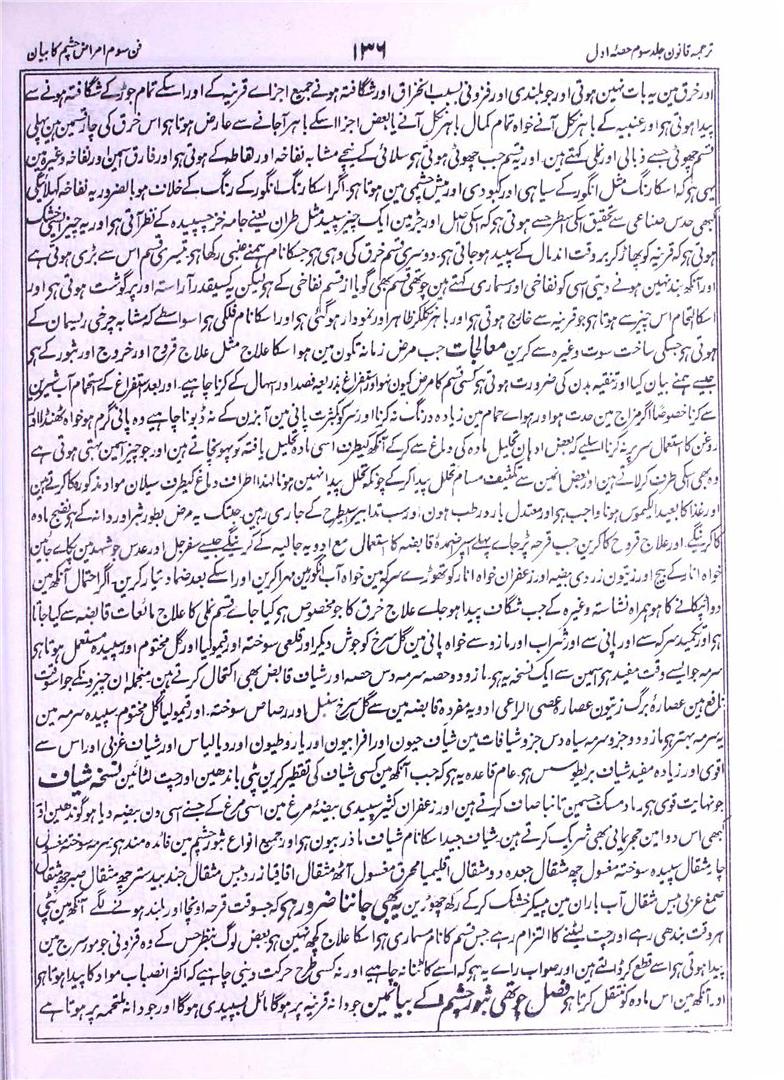 ترجمہ قانون جلد سوم حصۂ اول
۱۳۶
فن سوم امراض چشم کا بیان
اور خرق مین یہ بات نہین ہوتی اور جو بلندی اور فزونی بسبب انخراق اور شگافتہ ہونے جمیع اجزاے قرنیہ کے اور اسکے تمام جوڑ کے شگافتہ ہونے سے
پیدا ہوتی ہو اور عنبیہ کے باہر نکل آنے خواہ تمام کمال باہر نکل آنے یا بعض اجزا اسکے باہر آجانے سے عارض ہوتا ہو اس خرق کی چار قسمین ہین پہلی
قسم چھوٹی جسے ذبالی اور نملی کہتے ہین اور یہ قسم جب چھوٹی ہوتی ہو سلائی کے نیچے مشابہ نفاخہ اور نفاطہ کے ہوتی ہو اور فارق اسمین اور نفاخہ وغیرہ مین
یہی ہو کہ اسکا رنگ مثل انگور کے سیاہی اور کبودی اور میش چشمی مین ہوتا ہو اگر اسکا رنگ انگور کے رنگ کے خلاف ہو بالضرور یہ نفاخہ کہلائیگی
کبھی حدس صناعی سے تحقیق اسکی اسطرح سے ہوتی ہو کہ اسکی اصل اور جڑ مین ایک چیز سپید مثل طران یعنے جامہ خز سپیدہ کے نظر آتی ہو اور یہ چیز
ہوتی ہو کہ قرنیہ کو پھاڑ کر بروقت اندمال کے سپید ہو جاتی ہو دوسری قسم خرق کی وہی ہو جسکا نام ہمنے عنبی رکھا ہو تیسری قسم اس سے بڑی ہوتی ہے
اور آنکھ بند نہین ہونے دیتی اسی کو نفاخی اور مسماری کہتے ہین چوتھی قسم بھی گویا از قسم نفاخی کے ہو لیکن یہ کسیقدر آراستہ اور پر گوشت ہوتی ہو اور
اسکا التحام اس چیز سے ہوتا ہو جو قرنیہ سے خارج ہوتی ہو اور باہر نکلکر ظاہر اور نمودار ہو گئی ہو اور اسکا نام فلکی ہو اسواسطے کہ مشابہ چرخی ریسمان کے
ہوتی ہو جسکی ساخت سوت وغیرہ سے کرین معالجات جب مرض زمانہ تکون مین ہو اسکا علاج مثل علاج قروح اور خروج اور بثور کے ہو
جیسے ہمنے بیان کیا اور تنقیہ بدن کی ضرورت ہوتی ہو کسی قسم کا مرض کیون نہو اور استفراغ بذریعہ فصد اور اسہال کے کرنا چاہیے اور بعد استفراغ کے استحمام آب شیرین
سے کرنا خصوصاً اگر مزاج مین حدت ہو اور ہواے حمام مین زیادہ درنگ نہ کرنا اور سر کو بکثرت پانی مین آبزن کے نہ ڈبونا چاہیے وہ پانی گرم ہو خواہ ٹھنڈا اور
روغن کا استعمال سر پر نہ کرنا اسلیے کہ بعض ادہان تحلیل مادہ کی دماغ سے کر کے آنکھ کیطرف اسی مادہ تحلیل یافتہ کو پہونچاتے ہین اور جو چیز اسمین بہتی ہوتی ہے
وہ بھی اسکی طرف کر لاتے ہین اور بعض انمین سے تکثیف مسام تخلل پیدا کر کے چونکہ تخلل پیدا نہین ہوتا لہذا اطراف دماغ کیطرف سیلان مواد مذکورہ کا کرتے ہین
اور غذا کا بعید الکیموس ہونا واجب ہو اور معتدل بارد رطب ہون اور سب تدابیر اسیطرح کے جاری رہین جبتک یہ مرض بطور بثر اور دانہ کے ہو نضج مادہ
کا کرینگے اور علاج قروح کا کرین جب قرحہ پڑ جاے پہلے اسپر ضمادہ قابضہ کا استعمال مع ادویہ جالیہ کے کرینگے جیسے سفرجل اور عدس جو شہد مین پکاے جائین
خواہ انار کے بیج اور زیتون زردی بیضہ اور زعفران خواہ انار کو تھوڑے سرکہ مین خواہ آب انگور مین مہرا کرین اور اسکے بعد ضماد تیار کرین اگر احتمال آنکھ مین
دوا ٹپکانے کا ہو ہمراہ نشاستہ وغیرہ کے جب شگاف پیدا ہو جاے علاج خرق کا جو مخصوص ہو کیا جاے قسم نملی کا علاج مائعات قابضہ سے کیا جاتا
ہو اور تکمید سرکہ سے اور پانی سے اور شراب اور مازو سے خواہ پانی مین گل سرخ کو جوش دیکر اور قلعی سوختہ اور قیمولیا اور گل مختوم اور سپیدہ مستعمل ہوتا ہو
سرمہ جو ایسے وقت مفید ہو اسمین سے ایک نسخہ یہ ہو مازو دو حصہ سرمہ دس حصہ اور شیاف قابض بھی اکتحال کرتے ہین منجملہ ان چیزونکے جو اسوقت
نافع ہین عصارۂ برگ زیتون عصارۂ عصی الراعی ادویہ مفردہ قابضہ مین سے گل سرخ سنبل اور رصاص سوختہ اور قیمولیا گل مختوم سپیدہ سرمہ مین
یہ سرمہ بہتر ہو مازو دو جزو سرمہ سیاہ دس جزو شیافات مین شیاف حیون اور افراجیون اور باروطیون اور دیالیاس اور شیاف غزبی اور اس سے
اقوی اور زیادہ مفید شیاف بریطوسس ہو عام قاعدہ یہ ہو کہ جب آنکھ مین کسی شیاف کی تقطیر کرین پٹی باندھین اور چت لٹائین نسخہ شیاف
جو نہایت قوی ہو رماد مسک جسمین تانبا صاف کرتے ہین اور زعفران کثیر سپیدی بیضۂ مرغ مین اسی مرغ کے جسنے اسی دن بیضہ دیا ہو گوندھین اور
کبھی اس دوا مین حجر یمانی بھی شریک کرتے ہین شیاف جید اسکا نام شیاف ماذریون ہو اور جمیع انواع بثور چشم مین فائدہ مند ہو سرمہ سوختہ مغسول
چار مثقال سپیدہ سوختہ مغسول چھ مثقال جعدہ دو مثقال اقلیمیا محرق مغسول آٹھ مثقال اقاقیا زرد بیس مثقال جندبیدستر چھ مثقال صبر چھ مثقال
صمغ عربی بیس مثقال آب باران مین پیسکر خشک کر کے رکھ چھوڑین یہ بھی جاننا ضرور ہو کہ جسوقت قرحہ اونچا اور بلند ہونے لگے آنکھ مین پٹی
ہر وقت بندھی رہے اور چت لیٹنے کا التزام رہے جس قسم کا نام مسماری ہو اسکا علاج کچھ نہین ہو بعض لوگ بنظر حس کے وہ فزونی جو مورسرج مین
پیدا ہوتی ہو اسے قطع کر ڈالتے ہین اور صواب راے یہ ہو کہ اسے کاٹنا نہ چاہیے اور نہ کسی طرح حرکت دینی چاہیے کہ اکثر انصباب مواد کا پیدا ہوتا ہو
اور آنکھ مین اس مادہ کو منتقل کرتا ہو فصل چوتھی بثور چشم کے بیانمین جو دانہ قرنیہ پر ہو گا مائل بسپیدی ہو گا اور جو دانہ ملتحمہ پر ہوتا ہے